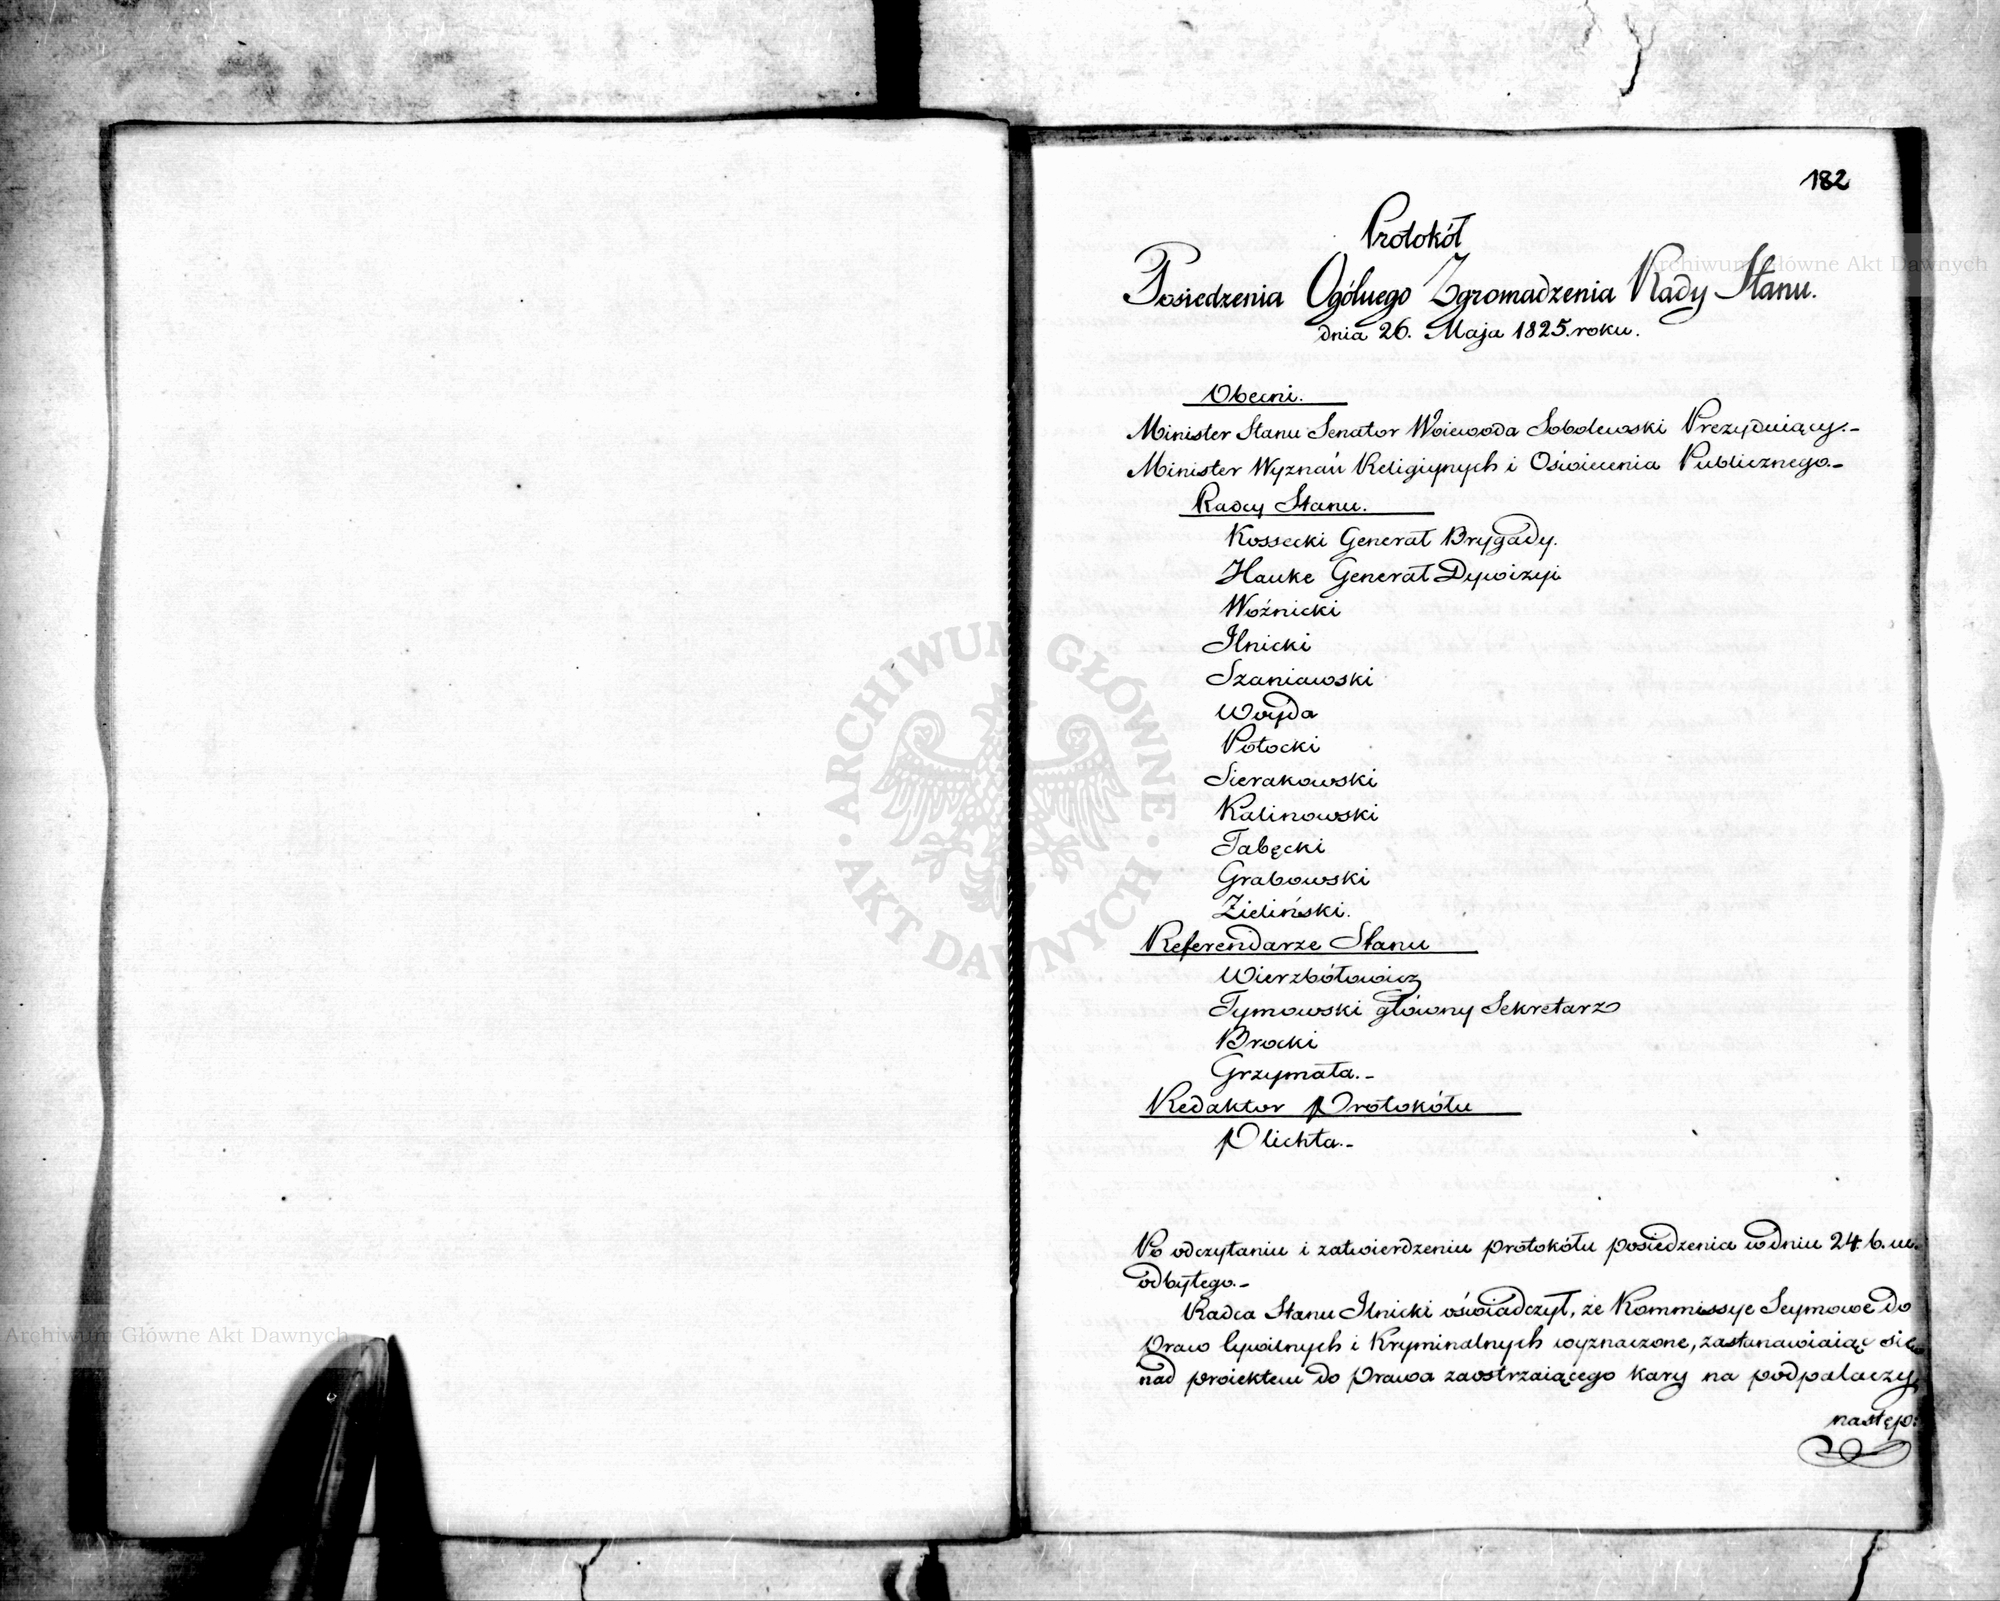 182
Protokół
Posiedzenia Ogólnego Zgromadzenia Rady Stanu.
dnia 26. Maja 1825. roku.
Obecni.
Minister Stanu Senator Woiewoda Sobolewski Prezyduiący.-
Minister Wyznań Religiynych i Oświecenia Publicznego.-
Radcy Stanu.
Kossecki Generał Brygady.
Hauke Generał Dywizyi
Woźnicki
Ilnicki
Szaniawski
Woyda
Potocki
Sierakowski
Kalinowski
Tabęcki
Grabowski
Zieliński.
Referendarze Stanu
Wierzbółowicz
Tymowski główny Sekretarz
Brocki
Grzymała.-
Redaktor Protokółu
Plichta.-
Po odczytaniu i zatwierdzeniu protokółu posiedzenia w dniu 24. b. m.
odbytego.-
Radca Stanu Ilnicki oświadczył, że Kommissye Seymowe do
Praw Cywilnych i Kryminalnych wyznaczone, zastanawiaiąc się
nad proiektem do Prawa zaostrzaiącego kary na podpalaczy,
następ:
ARCHIWUM GŁÓWNE
AKT DAWNYCH
Archiwum Główne Akt Dawnych
Archiwum Główne Akt Dawnych